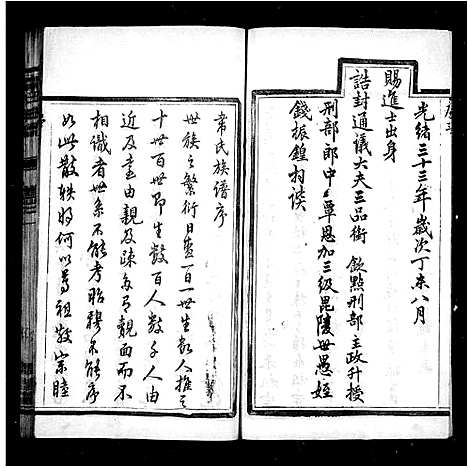 光緒三十三年歲次丁未八月
賜進士出身
誥封通議大夫三品銜 欽點刑部主政升授
刑部郎中覃恩加三級毘陵世愚姪
錢振鍠拜譔
常氏族譜序
世族之繁衍日盛一日一世生數人推之
十世百世即生數百人數千人由
近及遠由親及疎多有覿面而不
相識者世系不能考昭穆不能序
如此散軼將何以尊祖敬宗睦